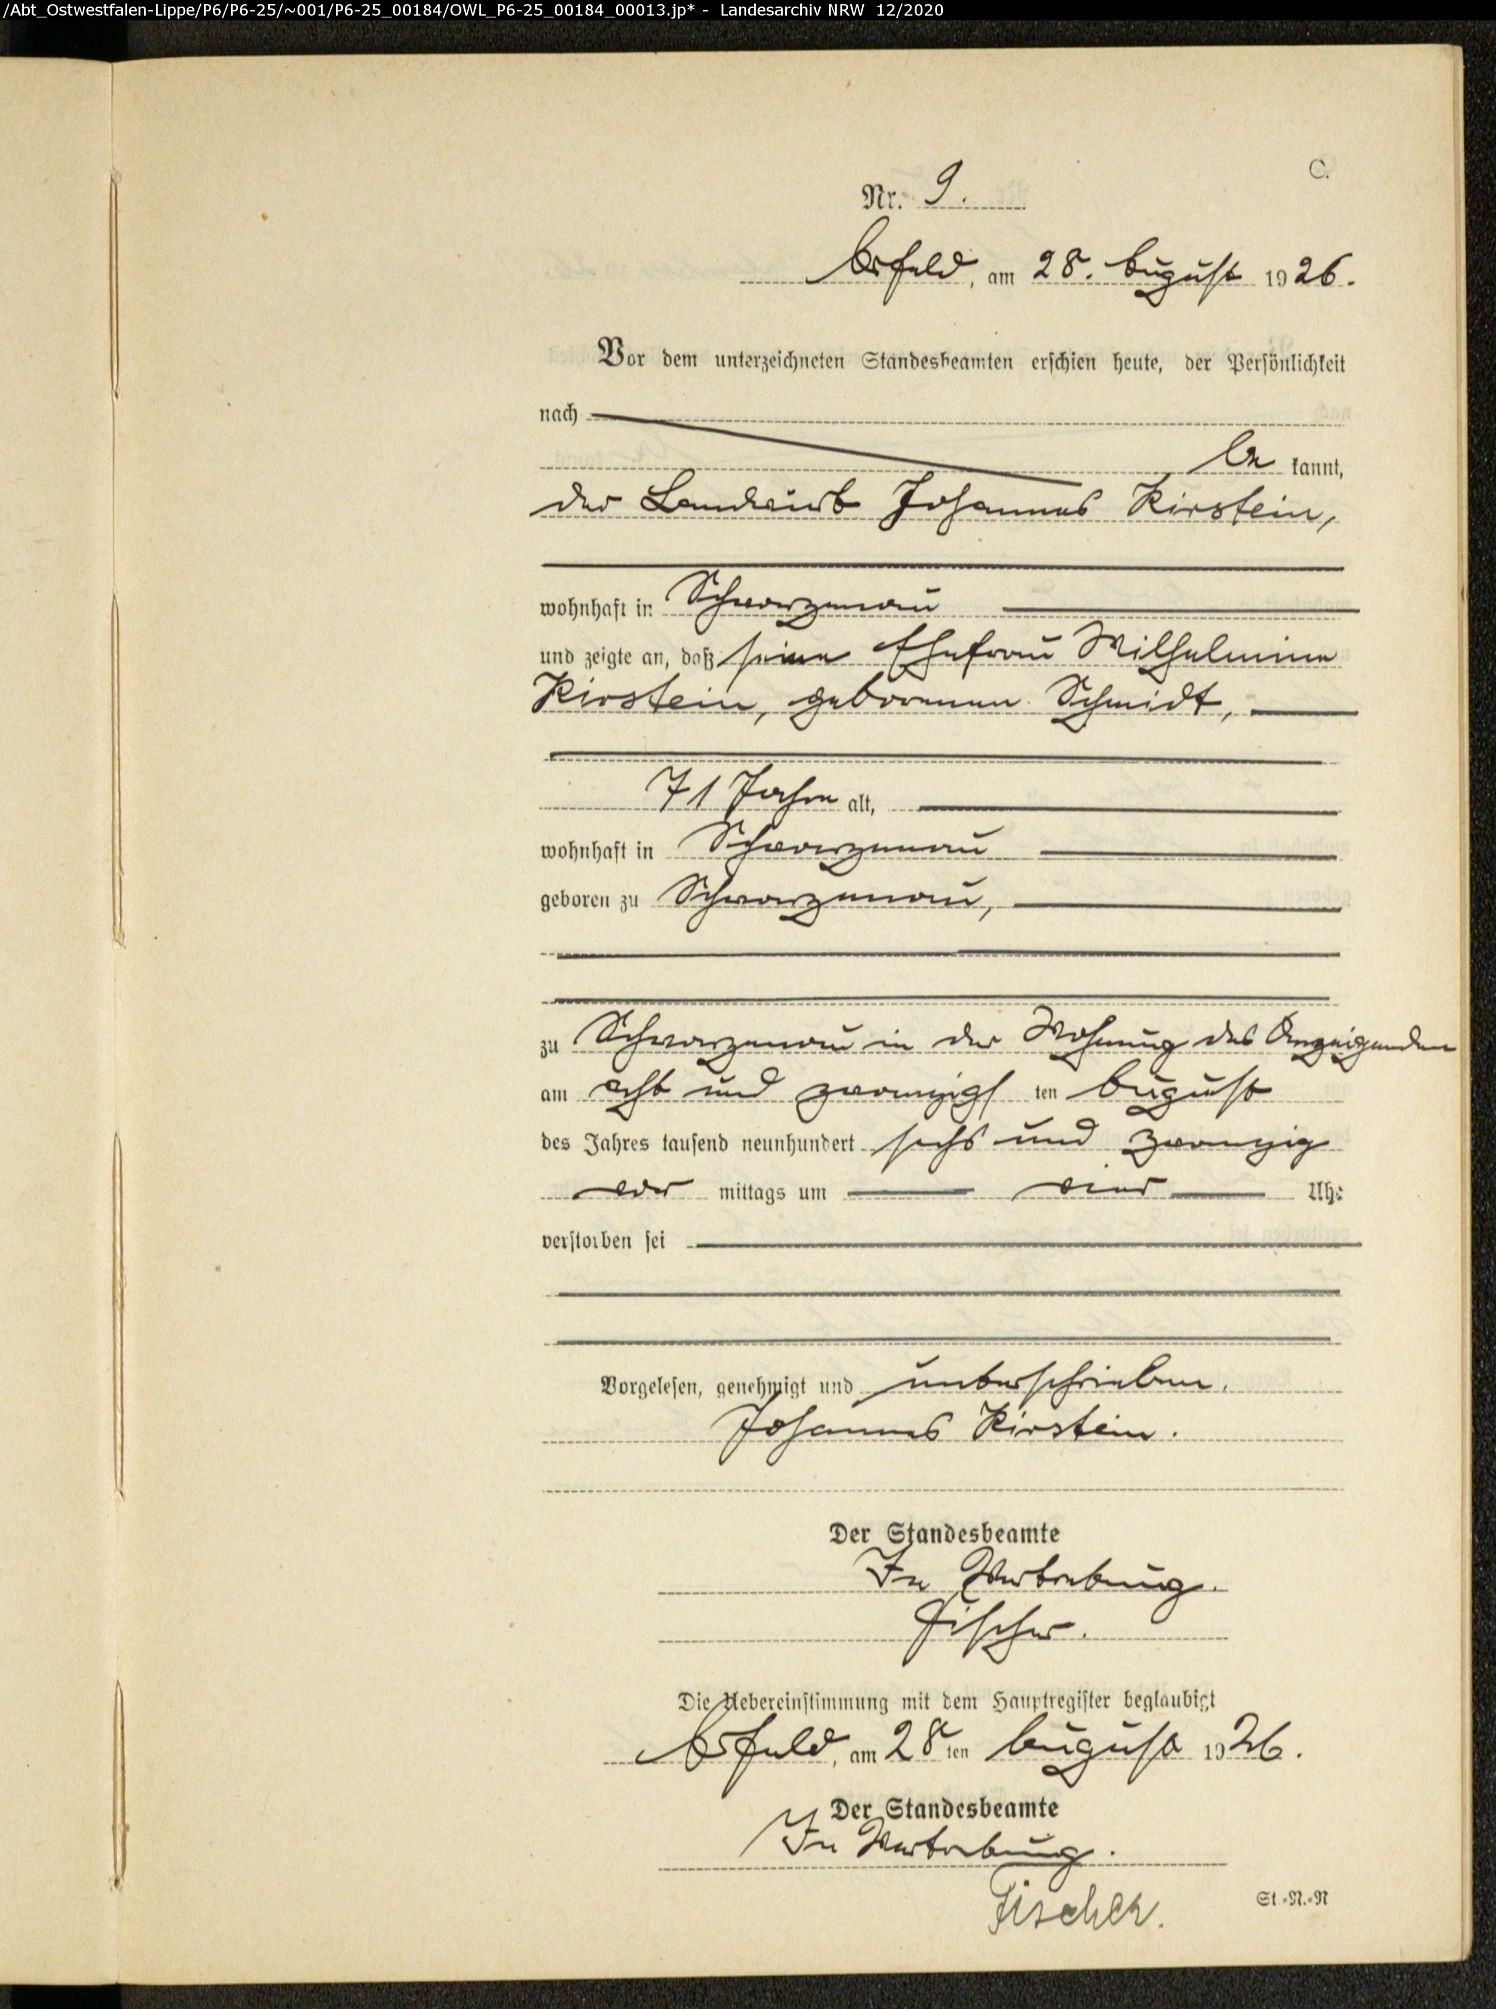 /Abt_Ostwestfalen-Lippe/P6/P6-25/~001/P6-25_00184/OWL_P6-25_00184_00013.jp* - Landesarchiv NRW 12/2020
C.
Nr. 9.
Arfeld, am 28. August 1926.
Vor dem unterzeichneten Standesbeamten erschien heute, der Persönlichkeit
nach
be kannt,
der Landwirt Johannes Kirstein,
wohnhaft in Schwarzenau
und zeigte an, daß seine Ehefrau Wilhelmine
Kirstein, geborenen Schmidt,
71 Jahre alt,
wohnhaft in Schwarzenau
geboren zu Schwarzenau,
zu Schwarzenau in der Wohnung des Anzeigenden
am acht und zwanzigs ten August
des Jahres tausend neunhundert sechs und zwanzig
vor mittags um vier Uhr
verstorben sei
Vorgelesen, genehmigt und unterschrieben.
Johannes Kirstein.
Der Standesbeamte
In Vertretung.
Fischer.
Die Uebereinstimmung mit dem Hauptregister beglaubigt
Arfeld, am 28 ten August 1926.
Der Standesbeamte
In Vertretung.
Fischer.
St.-N.-N